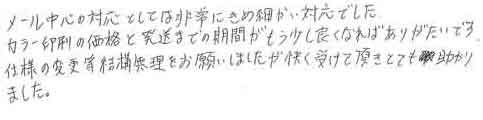 メール中心の対応としては非常にきめ細かい対応でした。
カラー印刷の価格と発送までの期間がもう少し良くなればありがたいです。
仕様の変更等結構無理をお願いしましたが快く受けて頂きとても助かり
ました。